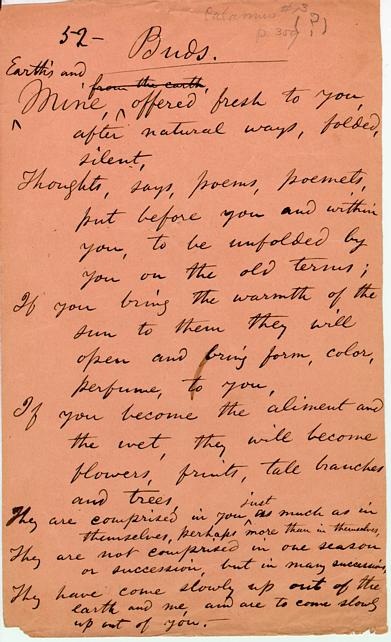 Calamus #13
p. 359 (?)
52- Buds.
Earth's and from the earth,
Mine, offered fresh to you
after natural ways, folded,
silent,
Thoughts, says, poems, poemets,
put before you and within
you, to be unfolded by
you on the old terms;
If you bring the warmth of the
sun to them they will
open and bring form, color,
perfume, to you,
If you become the aliment and
the wet, they will become
flowers, fruits, tall branches
and trees,
just
They are comprised in you as much as in
themselves, perhaps more than in themselves,
They are not comprised in one season
or succession, but in many successions,
They have come slowly up out of the
earth and me, and are to come slowly
up out of you.-